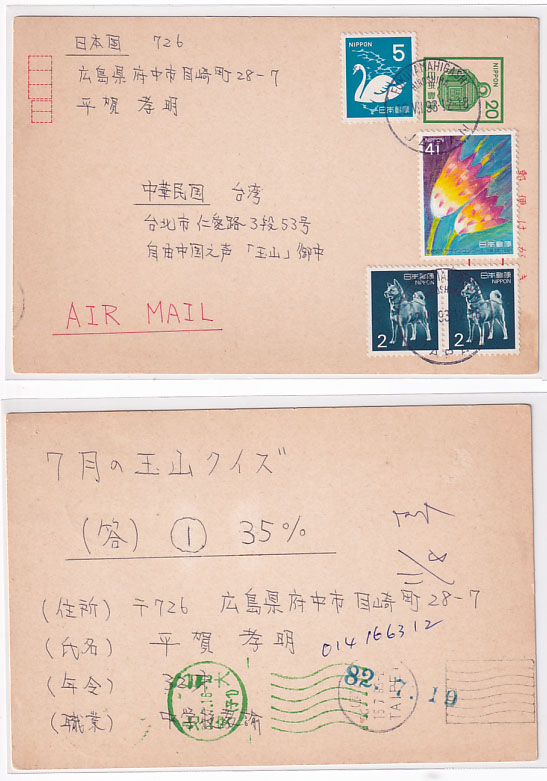 日本国 726
広島県府中市目崎町28-7
平賀 孝明
NIPPON 5
日本郵便
NIPPON
20
NIPPON 41
日本郵便
郵便はがき
中華民国 台湾
台北市仁愛路3段53号
自由中国之声「玉山」御中
AIR MAIL
日本郵便
NIPPON
2
日本郵便
NIPPON
2
7月の玉山クイズ
(答) ① 35%
(住所) 〒726 広島県府中市目崎町28-7
(氏名) 平賀 孝明
014166312
(年令) 32才
(職業) 中学校教諭
82.7.19